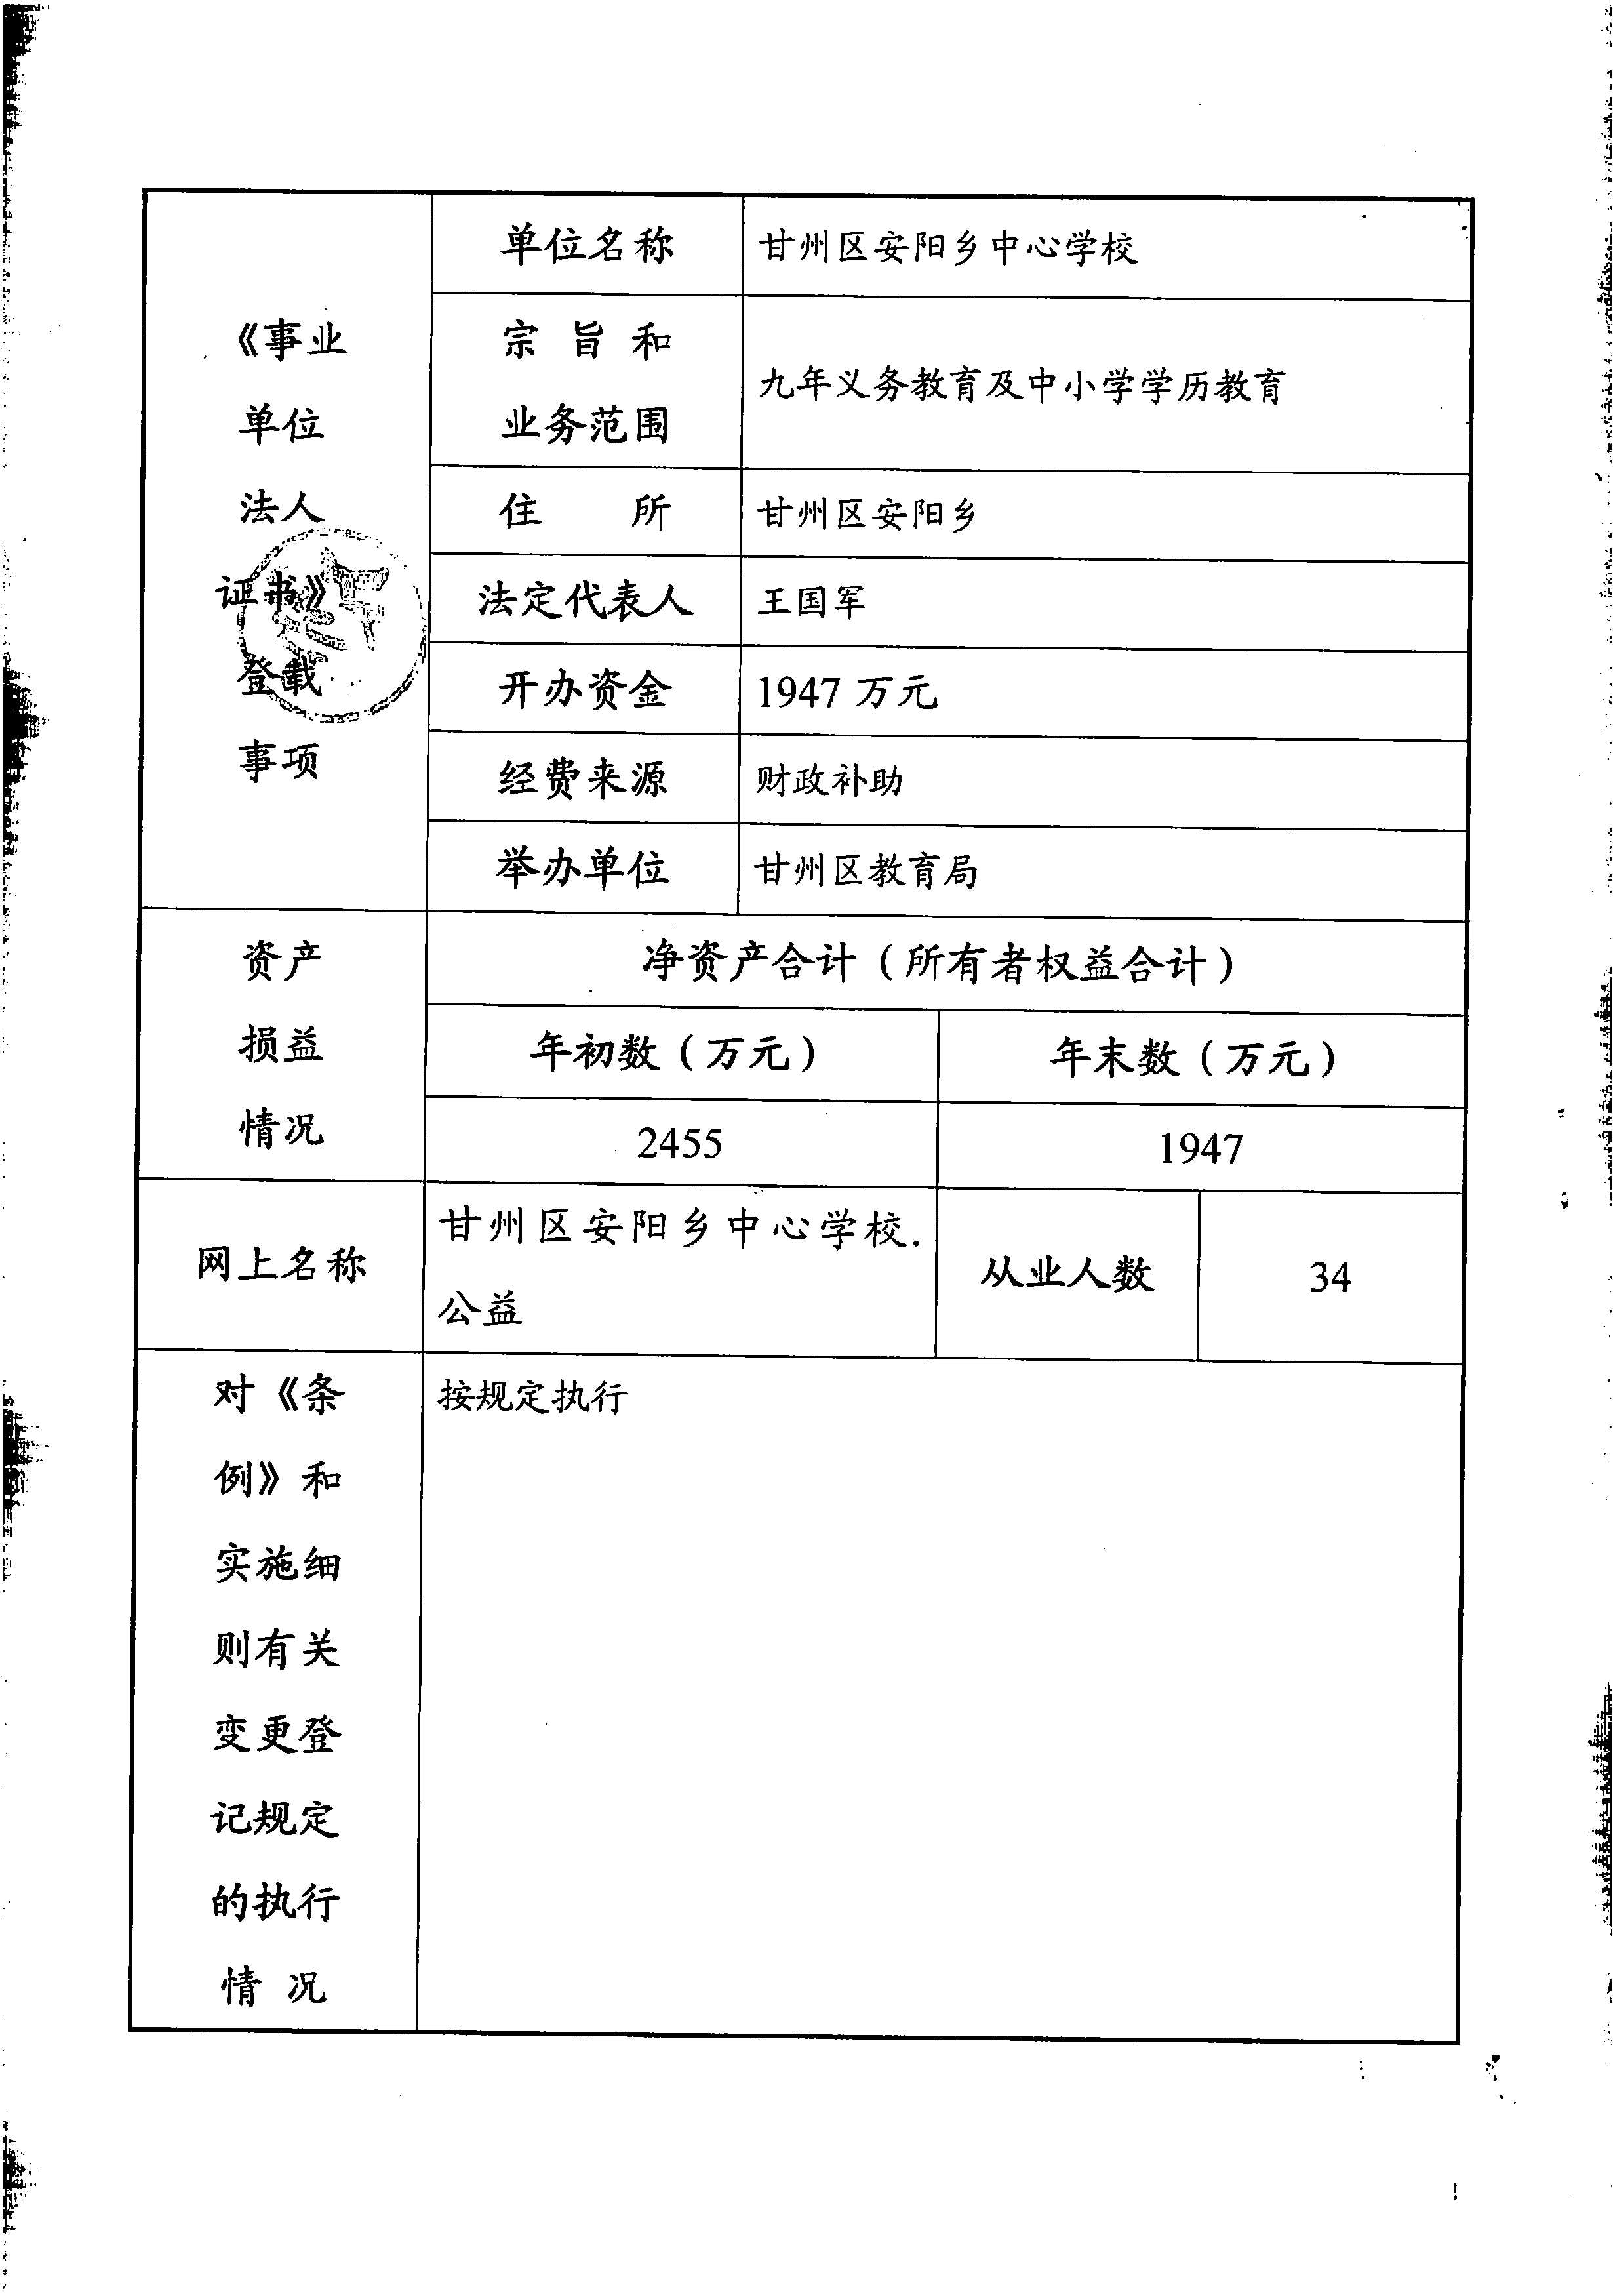 《事业
单位
法人
证书》
登载
事项
单位名称
甘州区安阳乡中心学校
宗旨和
业务范围
九年义务教育及中小学学历教育
住所
甘州区安阳乡
法定代表人
王国军
开办资金
1947 万元
经费来源
财政补助
举办单位
甘州区教育局
资产
损益
情况
净资产合计（所有者权益合计）
年初数（万元）
年末数（万元）
2455
1947
网上名称
甘州区安阳乡中心学校.
公益
从业人数
34
对《条
例》和
实施细
则有关
变更登
记规定
的执行
情况
按规定执行